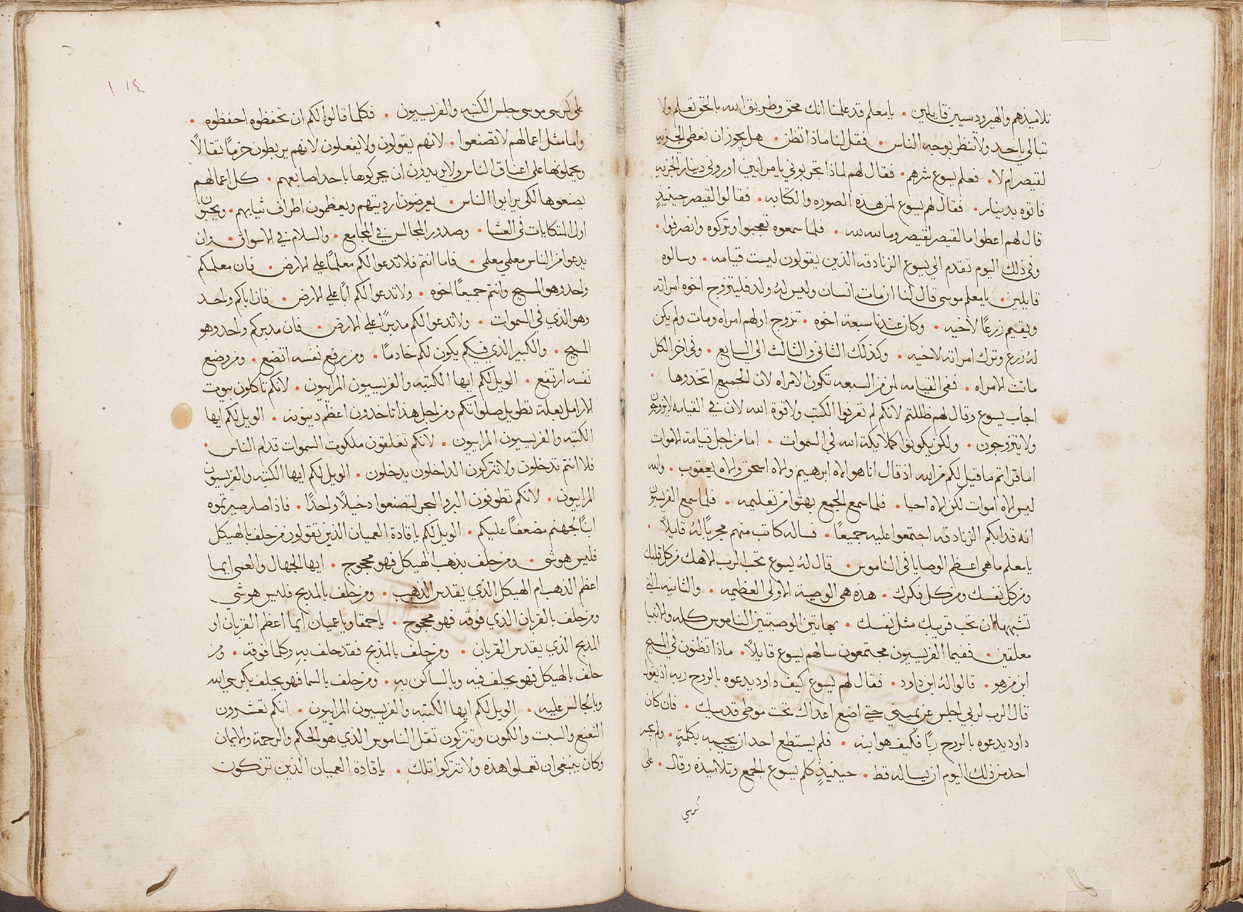 تلاميذهم والهيرودسيين قايلين • يا معلم قد علمنا انك محق وطريق الله بالحق تعلم ولا
تبالي باحد ولا تنظر لوجه الناس • فقل لنا ماذا تظن • هل يجوز ان نعطي الجزيه
لقيصر ام لا • فعلم يسوع شرهم • فقال لهم لماذا تجربوني يا مرايين اوروني دينار الجزيه
فاتوه بدينار • فقال لهم يسوع لمن هذه الصوره والكتابه • فقالوا لقيصر حينيذٍ
قال لهم اعطوا ما لقيصر لقيصر وما لله لله • فلما سمعوه تعجبوا وتركوه وانصرفوا •
وفي ذلك اليوم تقدم الى يسوع الزنادقه الذين يقولون ليست قيامه • وسالوه
قايلين • يا معلم موسى قال لنا ان مات انسان وليس له ولد فليتزوج اخوه امراته
ويقيم زرعًا لاخيه • وكان عندنا سبعة اخوه • تزوج اولهم امراه ومات ولم يكن
له زرع وترك امراته لاخيه • وكذلك الثاني والثالث الى السابع • وفي اخر الكل
ماتت الامراه • ففي القيامه لمن من السبعه تكون الامراه لان الجميع اتخذوها •
اجاب يسوع وقال لهم ظللتم لانكم لم تعرفوا الكتب ولا قوة الله لان في القيامه لا يتزوجون
ولا يتزوجون • ولكن يكونون كملايكة الله في السموات • اما من اجل قيامة الاموات
اما قراتم ما قيل لكم من الله اذ قال انا هو الاه ابرهيم والاه اسحق والاه يعقوب • والله
ليس الاه اموات لكن الاه احيا • فلما سمع الجمع بهتوا من تعليمه • فلما سمع الفريسيون
انه قد ابكم الزنادقه اجتمعوا عليه جميعًا • فساله كاتب منهم مجربًا له قايلًا •
يا معلم ما هي اعظم الوصايا في الناموس • قال له يسوع تحب الرب الاهك من كل قلبك
ومن كل نفسك ومن كل فكرك • هذه هي الوصية الاولى العظيمه • والثانيه التي
تشبهها ان تحب قريبك مثل نفسك • بهاتين الوصيتين الناموس كله والانبيا
معلقين • ففيما الفريسيون مجتمعون سالهم يسوع قايلًا • ماذا تظنون في المسيح
ابن من هو • قالوا له ابن داود • فقال لهم يسوع كيف داود يدعوه بالروح ربه اذ يقول
قال الرب لربي اجلس عن يميني حتى اضع اعداك تحت موطي قدميك • فان كان
داود يدعوه بالروح ربًا فكيف هو ابنه • فلم يستطع احد ان يجيبه بكلمةٍ • ولم يجسر
احد من ذلك اليوم ان يساله قط • حينيذٍ كلم يسوع الجمع وتلاميذه وقال • على
كرسي
١١٤
على كرسي موسى جلس الكتبه والفريسيون • فكلما قالوا لكم ان تحفظوه احفظوه •
واما مثل اعمالهم لا تصنعوا • لانهم يقولون ولا يفعلون لانهم يربطون حزمًا ثقالًا
ويحملونها على اعناق الناس ولا يريدون ان يحركوها باحد اصابعهم • كل اعمالهم
يصنعوها لكي يرايوا الناس • يعرضون ارديتهم ويعظمون اطراف ثيابهم • ويحبون
اول المتكايات في العشا • وصدور المجالس في المجامع • والسلام في الاسواق • وان
يدعوا من الناس معلمي معلمي • فاما انتم فلا تدعوا لكم معلمًا على الارض • فان معلمكم
واحد وهو المسيح وانتم جميعًا اخوه • ولا تدعوا لكم ابًا على الارض • فان اباكم واحد
وهو الذي في السموات • ولا تدعوا لكم مدبرًا على الارض • فان مدبركم واحد وهو
المسيح • والكبير الذي فيكم يكون لكم خادمًا • ومن رفع نفسه اتضع • ومن وضع
نفسه ارتفع • الويل لكم ايها الكتبه والفريسيون المرايون • لانكم تاكلون بيوت
الارامل بعلة تطويل صلواتكم ومن اجل هذا تاخدون اعظم دينونه • الويل لكم ايها
الكتبه والفريسيون المرايون • لانكم تغلقون ملكوت السموات قدام الناس •
فلا انتم تدخلون ولا تتركون الداخلون يدخلون • الويل لكم ايها الكتبه والفريسيون
المرايون • لانكم تطوفون البر والبحر لتصنعوا دخيلًا واحدًا • فاذا صار صيرتموه
ابنًا لجهنم مضعفًا عليكم • الويل لكم يا قادة العميان الذين تقولون من حلف بالهيكل
فليس هو شي • ومن حلف بذهب الهيكل فهو محجوج • ايها الجهال والعمي ايما
اعظم الذهب ام الهيكل الذي يقدس الذهب • ومن حلف بالمذبح فليس هو شي
ومن حلف بالقربان الذي فوقه فهو محجوج • يا حمقا ويا عميان ايما اعظم القربان او
المذبح الذي يقدس القربان • ومن حلف بالمذبح فقد حلف به وكلما فوقه • ومن
حلف بالهيكل فهو يحلف فيه وبالساكن به • ومن حلف بالسما فهو يحلف بكرسي الله
وبالجالس عليه • الويل لكم ايها الكتبه والفريسيون المرايون • انكم تعشرون
النعنع والسبت والكمون وتتركون ثقل الناموس الذي هو الحكم والرحمة والايمان
وكان ينبغي ان تعملوا هذه ولا تتركوا تلك • يا قادة العميان الذين تتركون